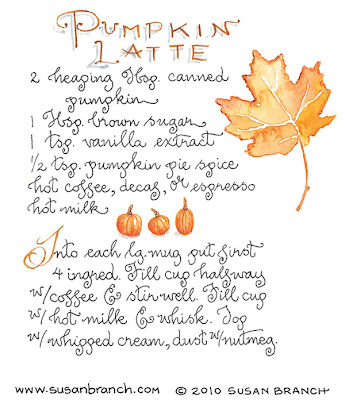 PUMPKIN
LATTE
2 heaping Tbsp. canned
pumpkin
1 Tbsp. brown sugar
1 tsp. vanilla extract
1/2 tsp. pumpkin pie spice
hot coffee, decaf, or espresso
hot milk
Into each lg. mug put first
4 ingred. Fill cup halfway
w/coffee & stir well. Fill cup
w/hot milk & whisk. Top
w/whipped cream, dust w/nutmeg.
www.susanbranch.com © 2010 SUSAN BRANCH